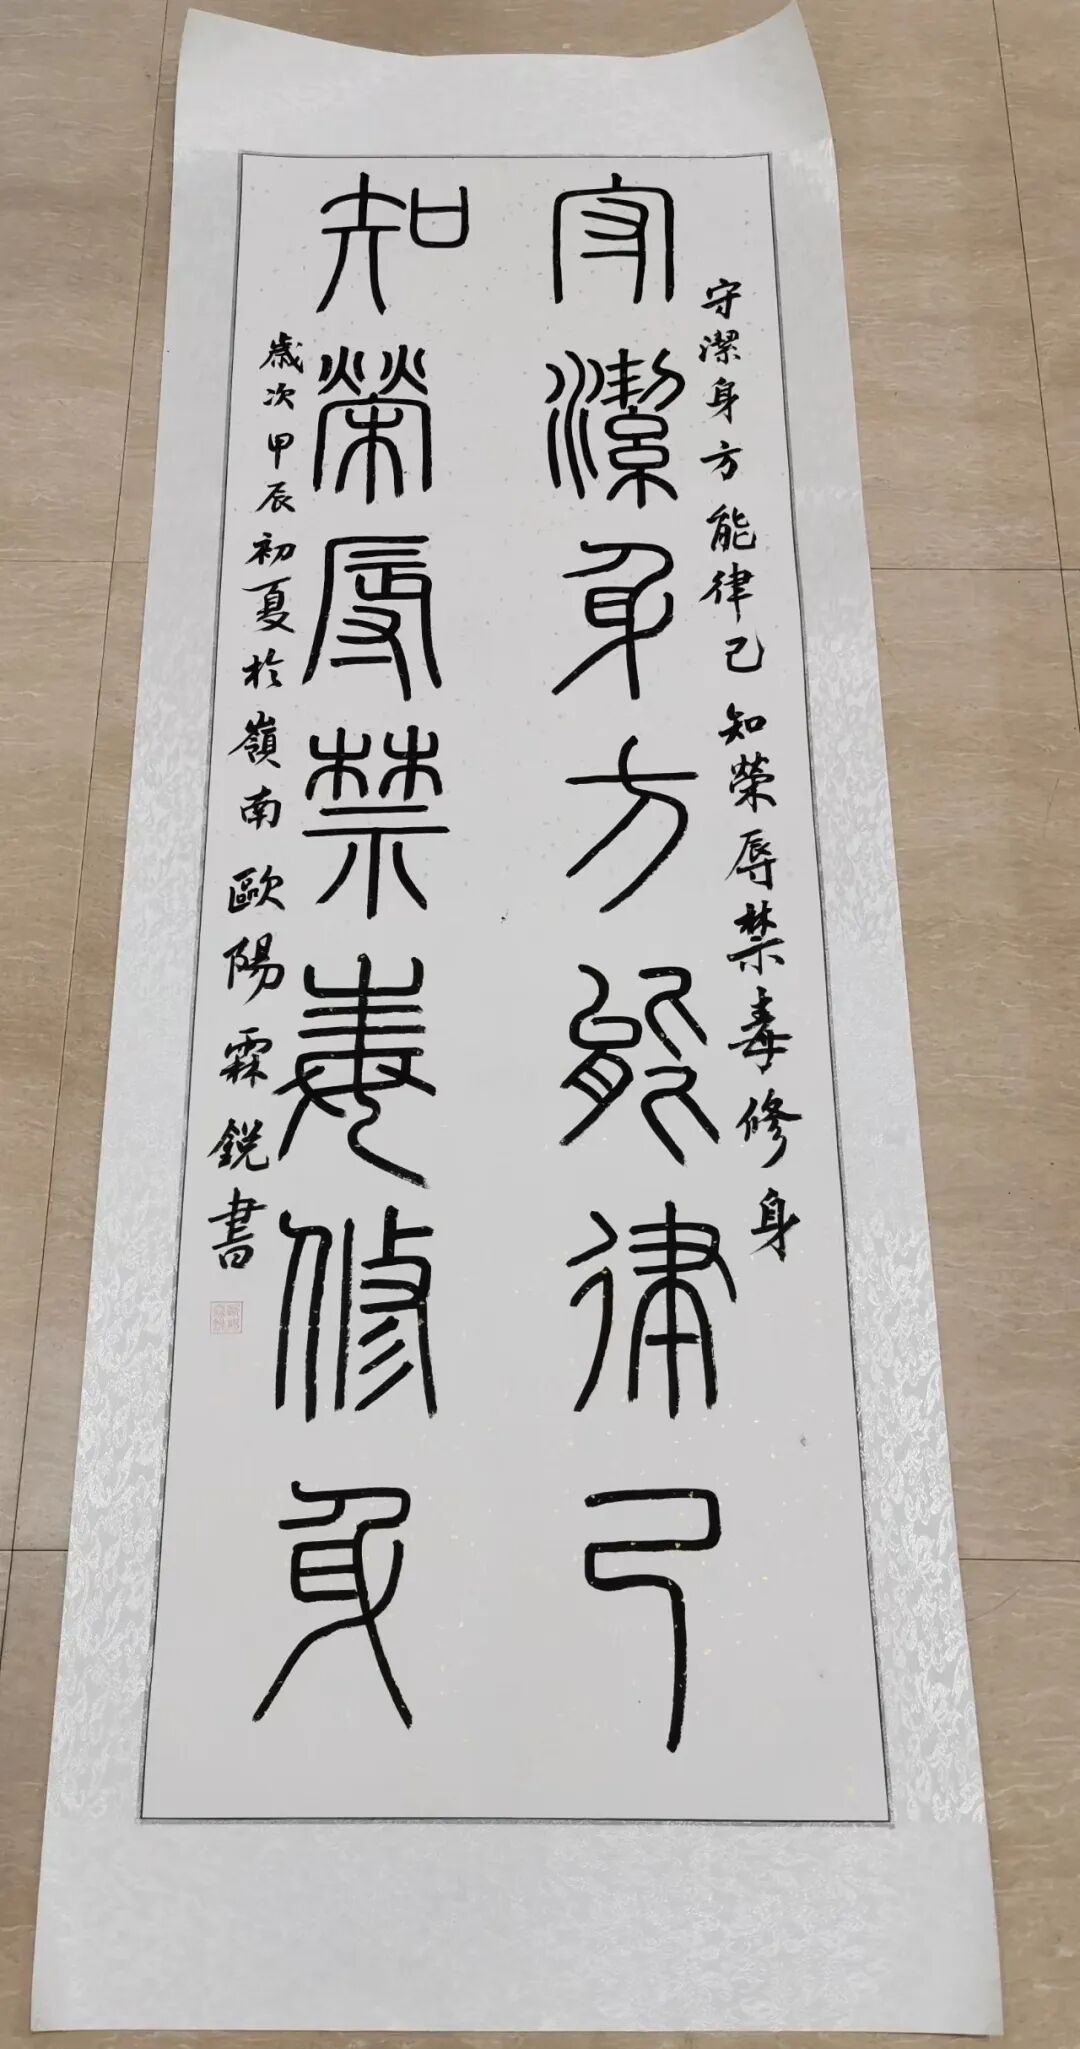 守潔身方能律己知榮辱禁毒修身
守潔身方能律己
知榮辱禁毒修身
歲次甲辰初夏於嶺南歐陽霖銳書